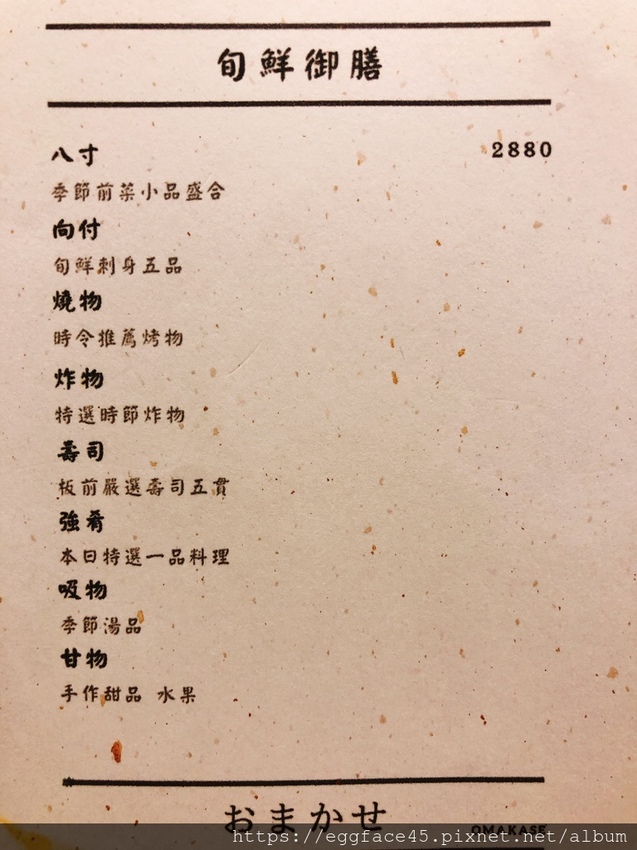 旬鮮御膳
八寸 2880
季節前菜小品盛合
向付
旬鮮刺身五品
燒物
時令推薦烤物
炸物
特選時節炸物
壽司
板前嚴選壽司五貫
強肴
本日特選一品料理
吸物
季節湯品
甘物
手作甜品 水果
おまかせ OMAKASE
https://eggface45.pixnet.net/album